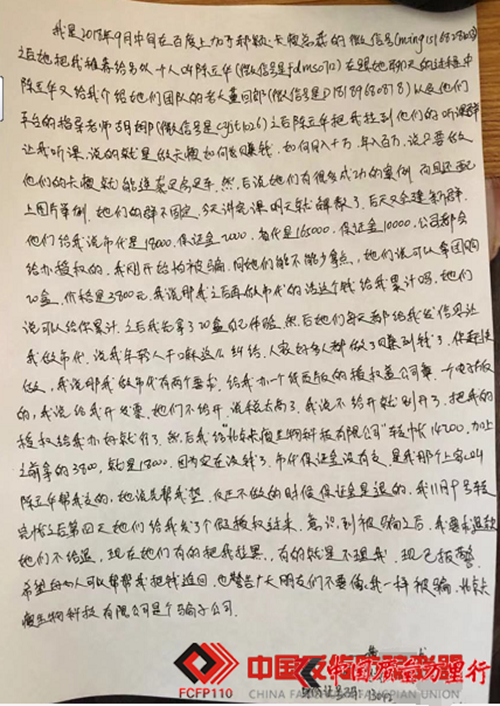 我是2018年9月中旬在百度上加了郝颖:大赖总裁的微信号
之后她把我推荐给另外一个人叫陈立华(微信号是fdms0712)在跟她聊天的过程中
陈立华又给我介绍她们团队的老大董回郎(微信号是D18189680878)以及他们
平台的指导老师胡娜(微信号是cyjt1026)之后陈立华把我拉到他们的听课群
让我听课,说的就是做大赖如何去赚钱,如何月入十万,年入百万,说只要做
他们的大赖就能连家足当车,然后说她们有很多成功的案例 而且还配
上图片举例,她们的群不固定,今天讲完课明天就解散了,后天又会建新群,
他们给我说市代是18000,保证金2000,省代是165000,保证金10000,公司都会
给办授权的,我刚开始怕被骗,问她们能不能少拿点,她们说可以拿团购
20盒,价格是3800元,我说那我之后再做市代的话这个钱给我累计吗,她们
说可以给你累计,之后我先拿了20盒自己体验,然后她们每天都给我发信息让
我做市代,说我年轻人干嘛这么纠结,人家好多人都做了赚到钱了,你赶快
做,我说那我做市代有两个要求,给我办一个纸质版的授权盖公司章,一个电子版
的,我说给我开发票,她们不给开,说税太高了,我说不给开就别开了,把我的
授权给我办好就行了,然后我给"北京大瘦生物科技有限公司"转帐14200,加上
之前拿的3800,就是18000,因为实在没钱了,市代保证金没有交,是我那个上家叫
陈立华帮我交的,她说先帮我垫,以后不做的时候保证金是退的,我11月9号转
完帐之后第四天她们给我发了个假授权过来,意识到被骗之后,我要求退款
她们不给退,现在她们有的把我拉黑,有的就是不理我,现已报警,
希望好心人可以帮帮我把钱追回,也警告广大朋友们不要像我一样被骗,北京大
瘦生物科技有限公司是个骗子公司.
FCFP110
CHINA FANGPIAN UNION
中国质量万里行